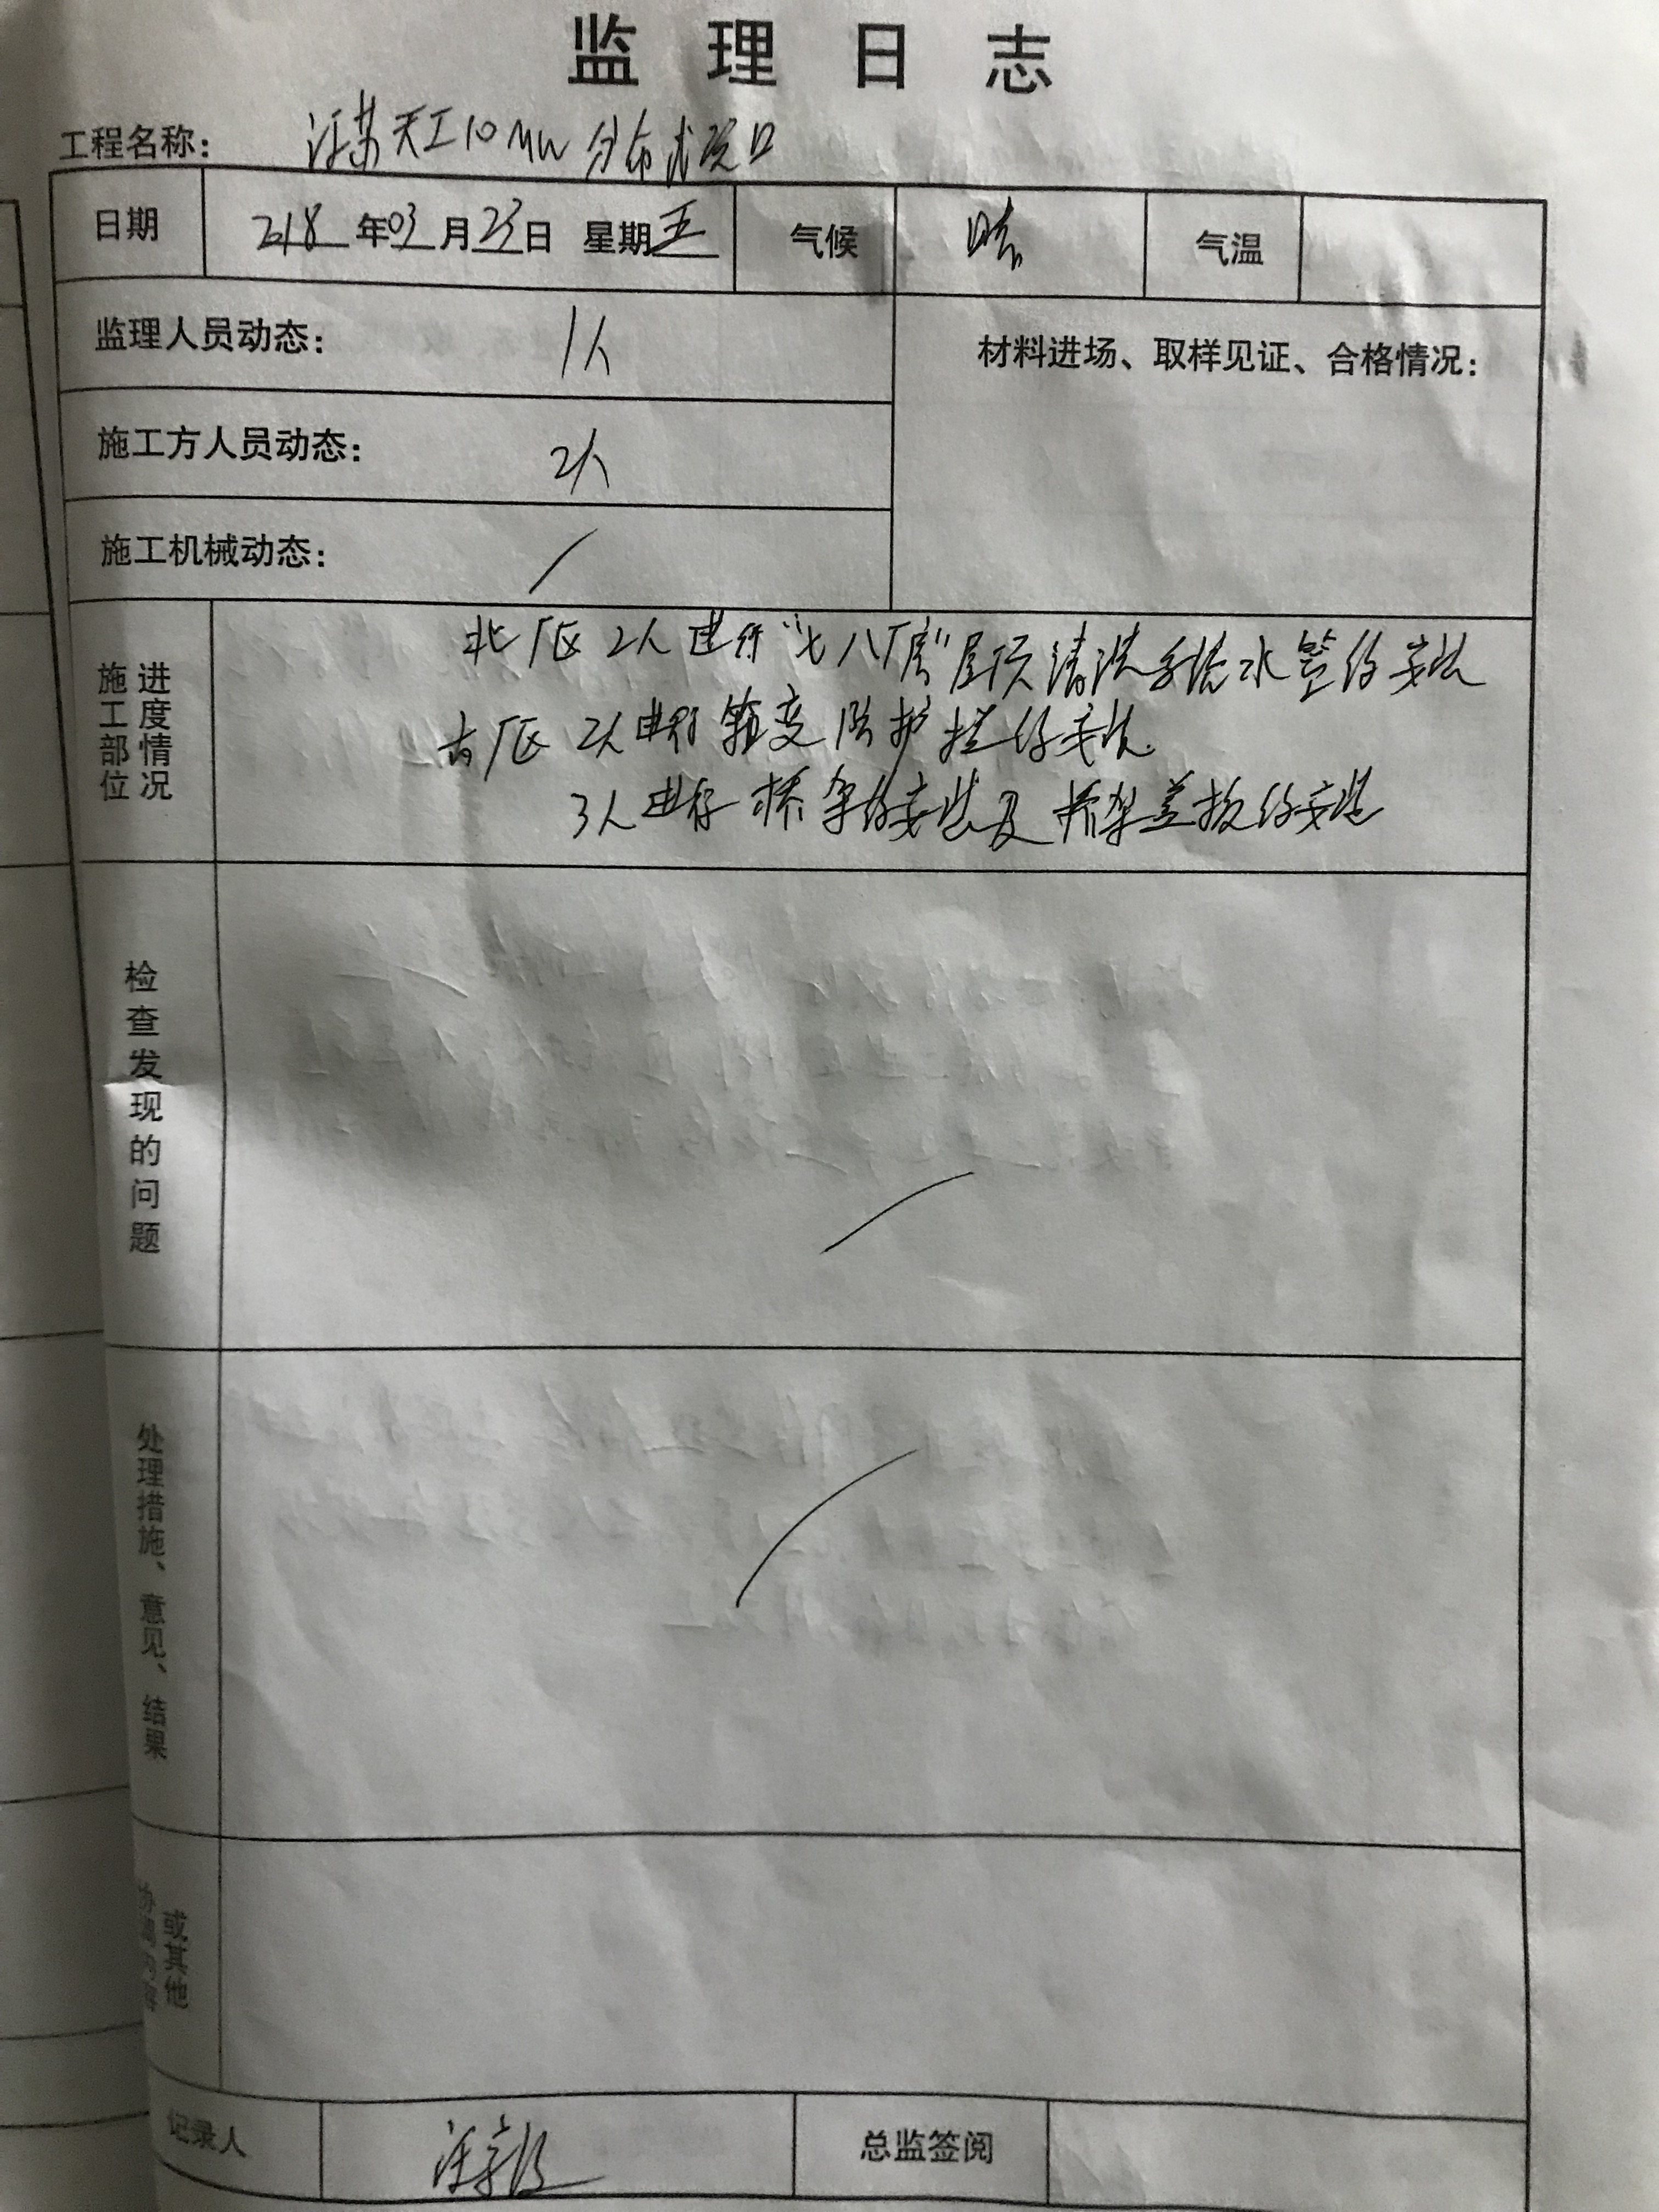 监理日志
工程名称： 江苏天工10MW分布式项目
日期 2018年03月23日 星期五 气候 晴 气温
监理人员动态： 1人
材料进场、取样见证、合格情况：
施工方人员动态： 2人
施工机械动态： /
施工部位 进度情况
北厂区2人进行“七八厂房”屋顶清洗系统水管的安装
南厂区 2人进行箱变防护栏的安装.
3人进行桥架的安装及桥架盖板的安装
检查发现的问题 /
处理措施、意见、结果 /
或其他
记录人 总监签阅